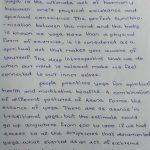 yoga is the ultimate act of harmony
between physical excellence and
spiritual conscience. The perfect synchro-
-nisation between the mind and the body
is known as yoga. More than a physical
form of exercise, it is considered as a
spiritual act that makes you aware of
yourself. The deep introspection that we do
when our mind is relaxed makes us feel
connected to our inner selves.
people practice yoga for spiritual
health and meditative benefits. A combination
of different postures of Asana forms the
essence of yoga. There are 84 asanas in
traditional yoga, but the estimate could
go up anywhere from 1000 to over if we
access to all the scriptures that documented
yoga. What started as an act of extreme